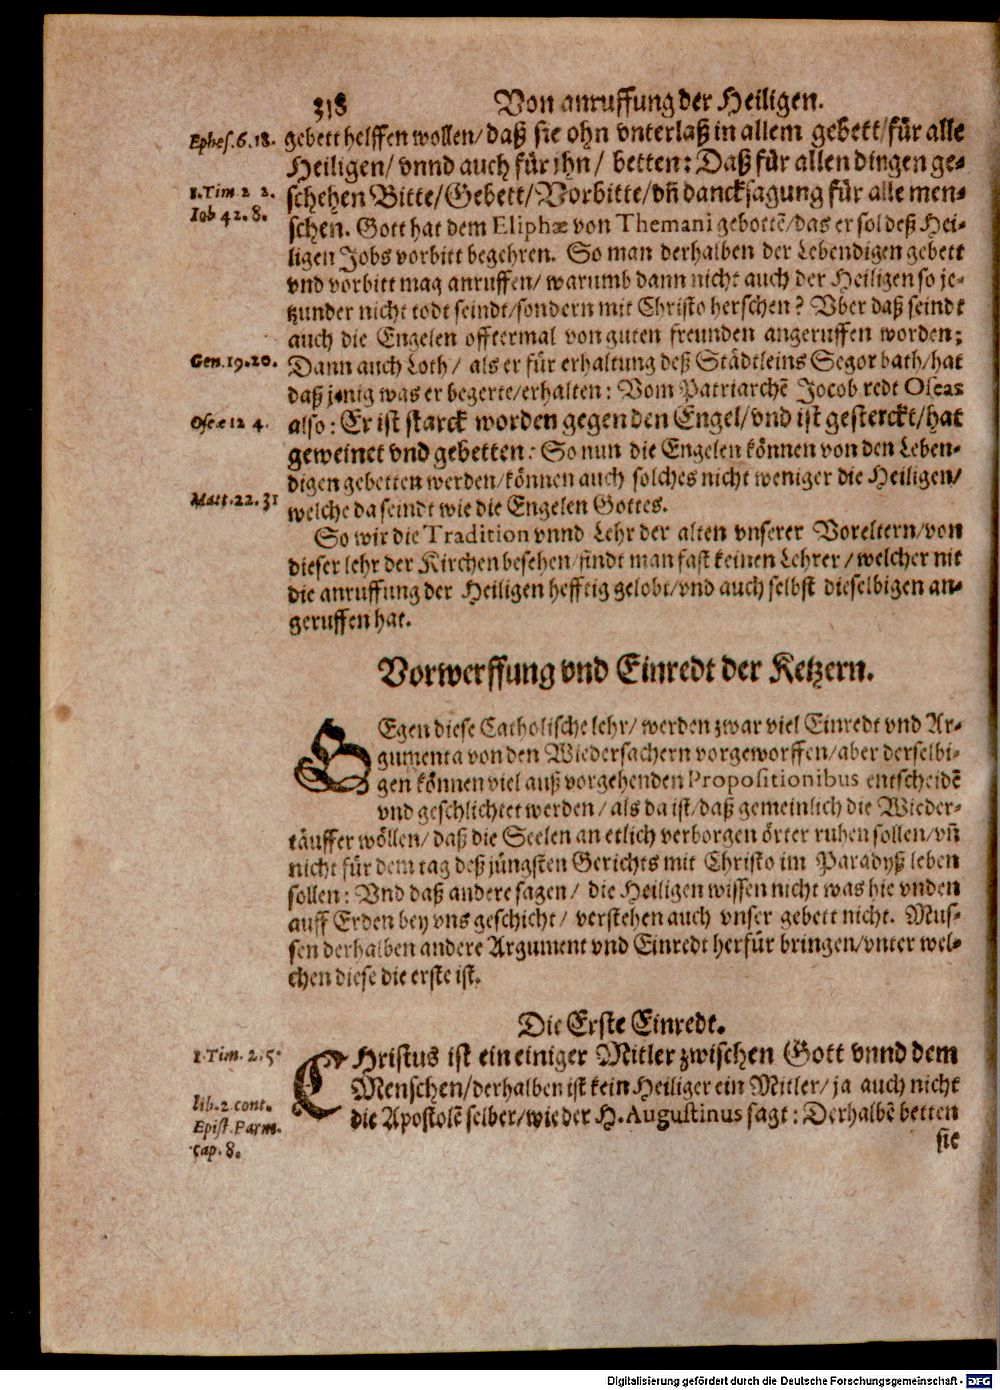 318 Von anruffung der Heiligen.
Ephes. 6. 18. gebett helffen wollen/ daß sie ohn vnterlaß in allem gebett/ für alle
Heiligen/ vnnd auch für ihn/ betten: Daß für allen dingen ge-
1. Tim 2 2. schehen Bitte/ Gebett/ Vorbitte/ vñ dancksagung für alle men-
Iob 42. 8. schen. Gott hat dem Eliphæ von Themani gebottē/ das er sol deß Hei-
ligen Jobs vorbitt begehren. So man derhalben der Lebendigen gebett
vnd vorbitt mag anruffen/ warumb dann nicht auch der Heiligen so je-
tzunder nicht todt seindt/ sondern mit Christo herschen? Vber daß seindt
auch die Engelen offtermal von guten freunden angeruffen worden;
Gen. 19. 20. Dann auch Loth/ als er für erhaltung deß Städtleins Segor bath/ hat
daß jenig was er begerte/ erhalten: Vom Patriarchē Jocob redt Oseas
Oseæ 12 4. also: Er ist starck worden gegen den Engel/ vnd ist gesterckt/ hat
geweinet vnd gebetten: So nun die Engelen können von den Leben-
digen gebetten werden/ können auch solches nicht weniger die Heiligen/
Matt. 22. 31 welche da seindt wie die Engelen Gottes.
So wir die Tradition vnnd Lehr der alten vnserer Voreltern/ von
dieser lehr der Kirchen besehen/ findt man fast keinen Lehrer/ welcher nit
die anruffung der Heiligen hefftig gelobt/ vnd auch selbst dieselbigen an-
geruffen hat.
Vorwerffung vnd Einredt der Ketzern.
GEgen diese Catholische lehr/ werden zwar viel Einredt vnd Ar-
gumenta von den Wiedersachern vorgeworffen/ aber derselbi-
gen können viel auß vorgehenden Propositionibus entscheidē
vnd geschlichtet werden/ als da ist/ daß gemeinlich die Wieder-
täuffer wöllen/ daß die Seelen an etlich verborgen örter ruhen sollen/ vñ
nicht für dem tag deß jüngsten Gerichts mit Christo im Paradyß leben
sollen: Vnd daß andere sagen/ die Heiligen wissen nicht was hie vnden
auff Erden bey vns geschicht/ verstehen auch vnser gebett nicht. Mus-
sen derhalben andere Argument vnd Einredt herfür bringen/ vnter wel-
chen diese die erste ist.
Die Erste Einredt.
1. Tim. 2. 5. CHristus ist ein einiger Mitler zwischen Gott vnnd dem
Menschen/ derhalben ist kein Heiliger ein Mitler/ ja auch nicht
lib. 2 cont. die Apostolē selber/ wie der H. Augustinus sagt: Derhalbē betten
Epist. Parm. sie
cap. 8.
Digitalisierung gefördert durch die Deutsche Forschungsgemeinschaft - DFG